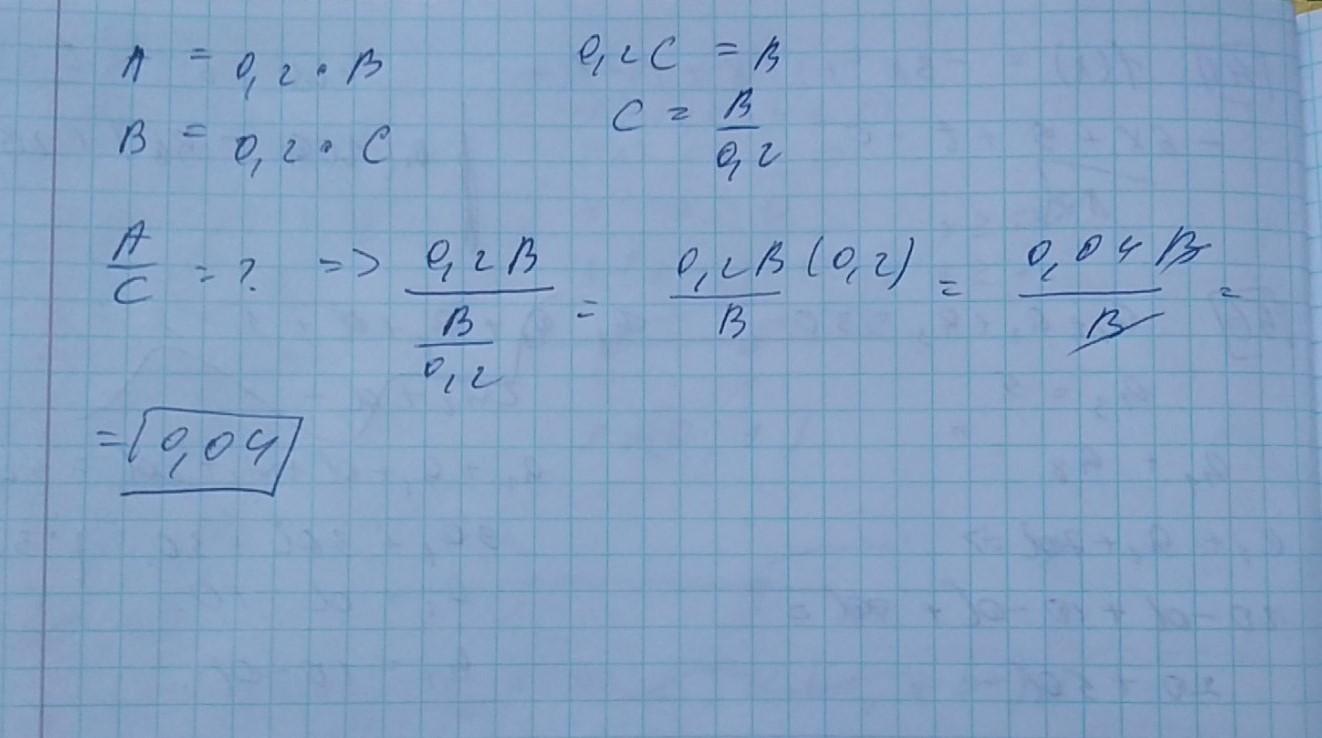 A = 0,2 · B
0,2C = B
B = 0,2 · C
C = B/0,2
A/C = ? => 0,2B/(B/0,2) = 0,2B(0,2)/B = 0,04B/B =
= 0,04